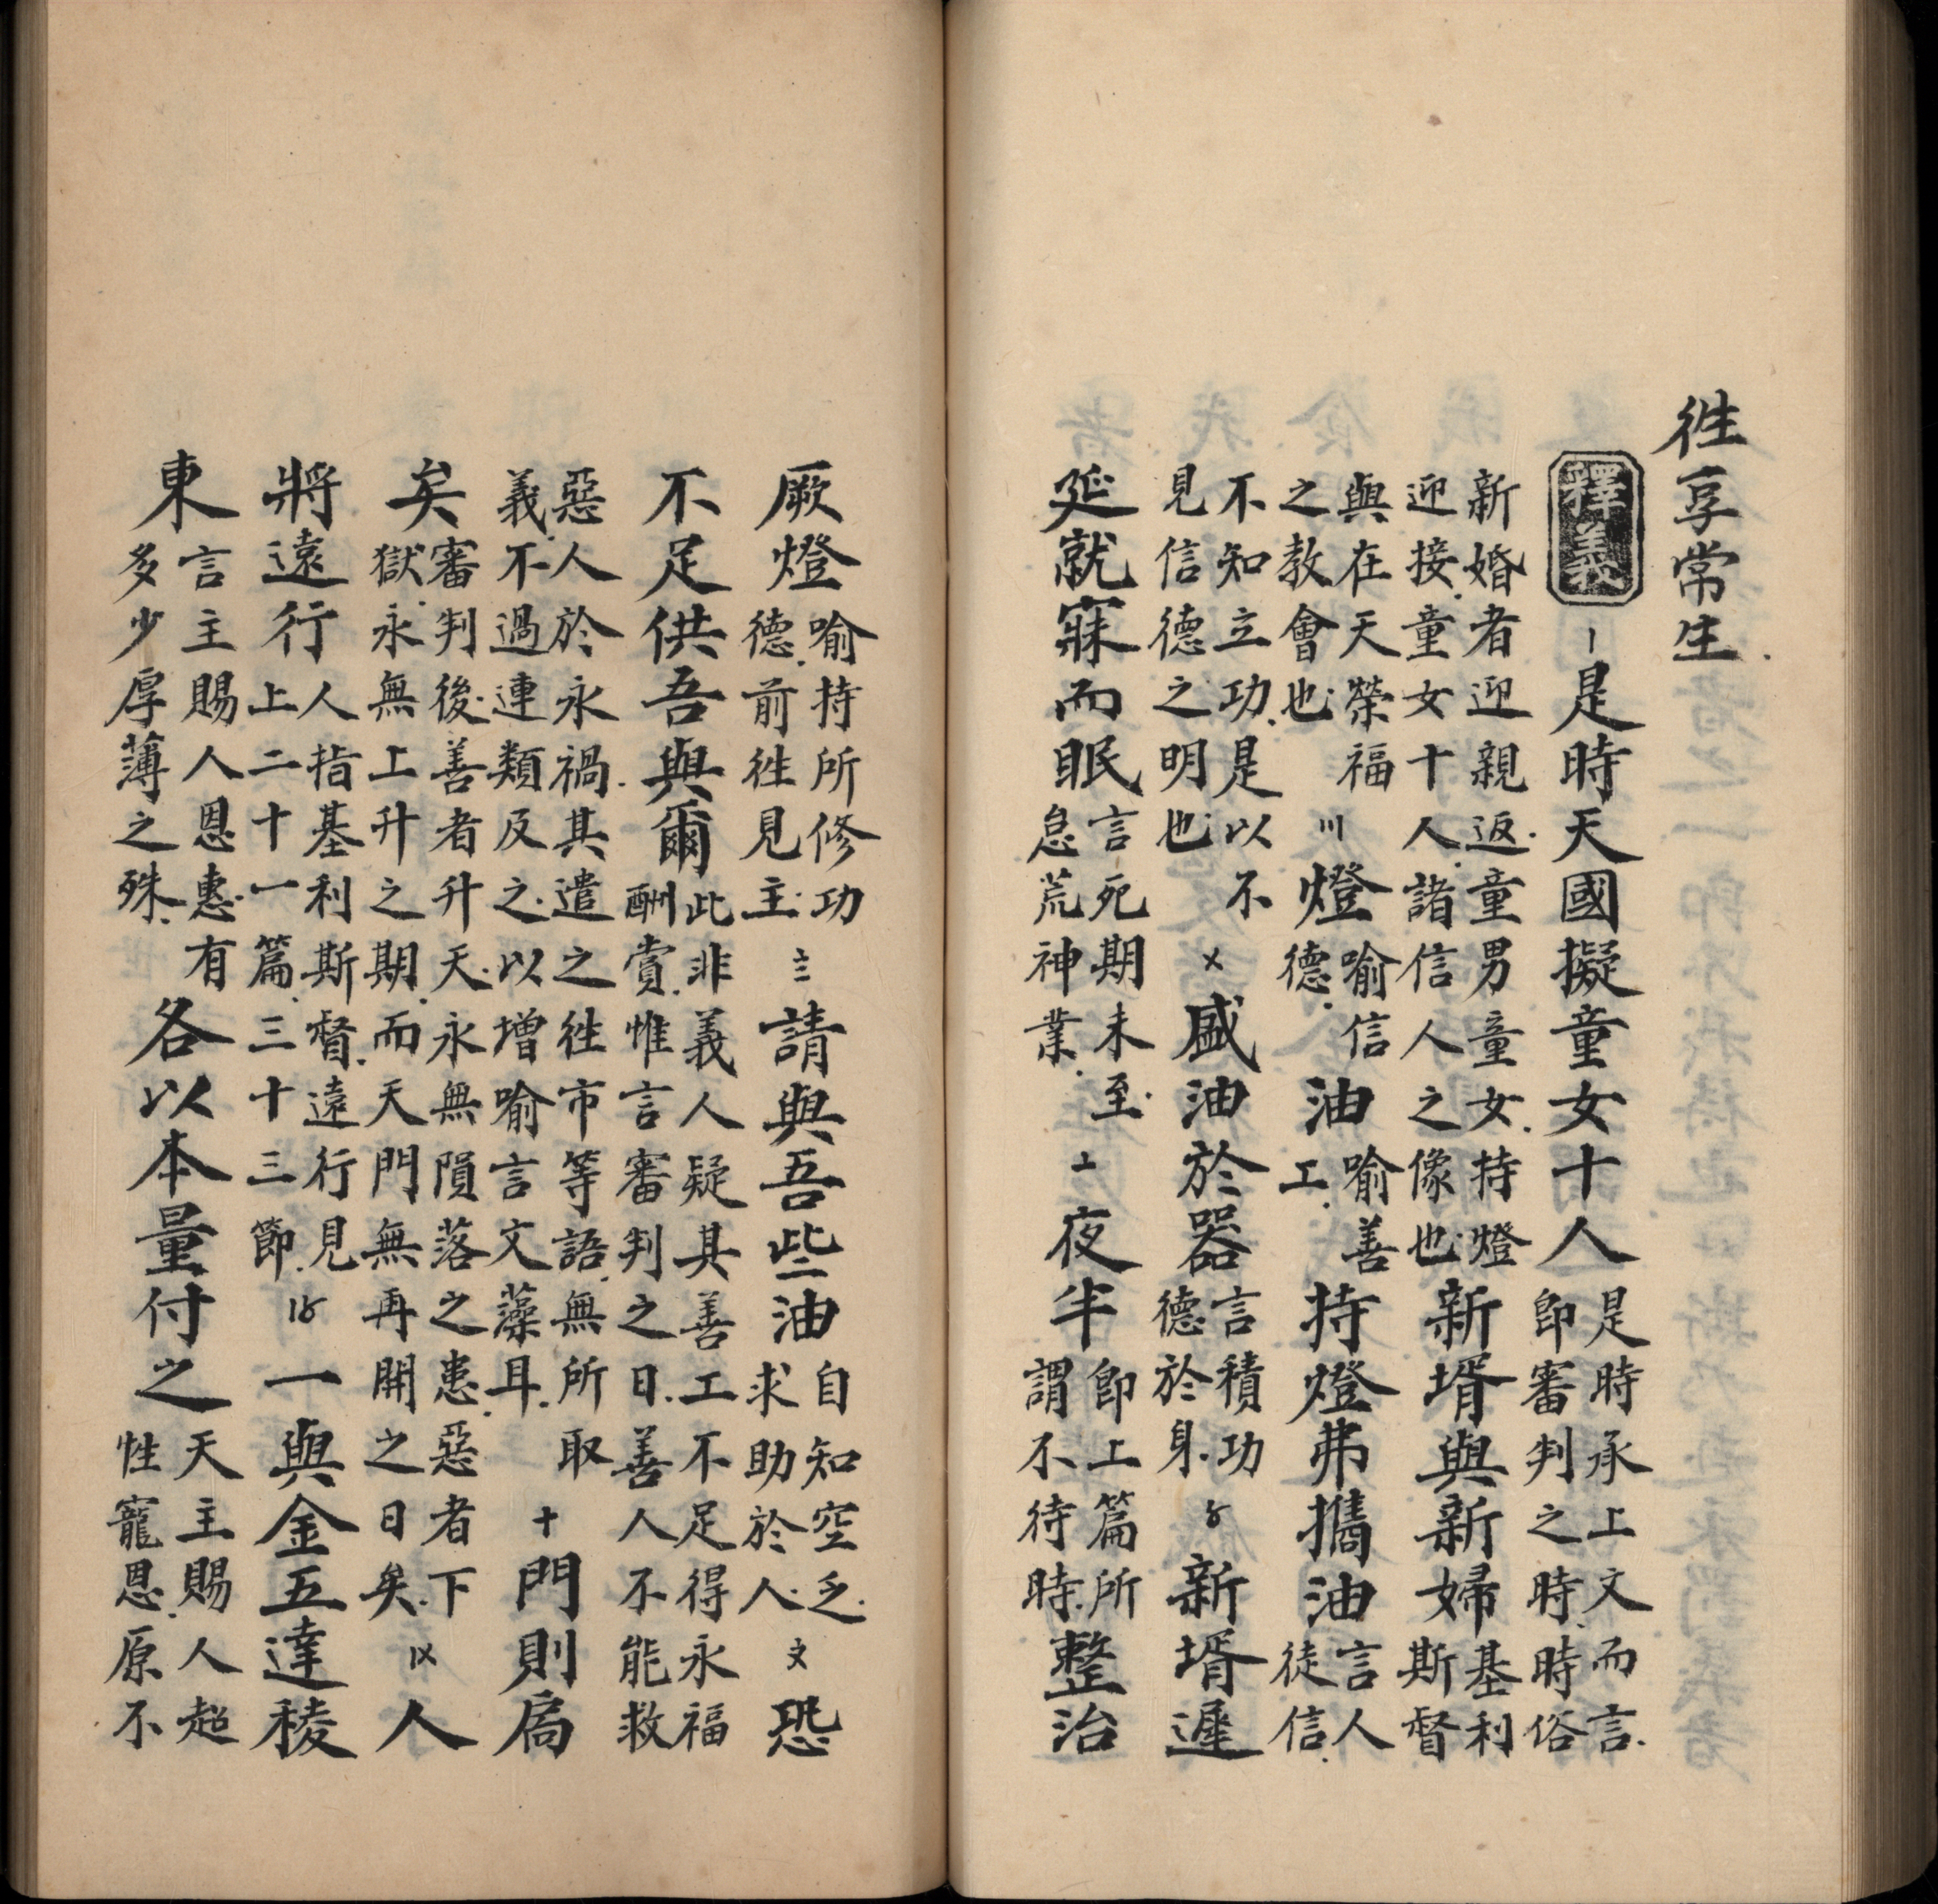 徃享常生
釋義〡是時天國擬童女十人是時承上文而言即審判之時時俗
新婚者迎親返童男童女持燈迎接童女十人諸信人之像也新壻與新婦基利斯督
與在天榮福之教會也〣燈喻信德油喻善工持燈弗攜油言人徒信
不知立功是以不見信德之明也〤盛油於器言積功德於身〥新壻遲
延就寐而眠言死期未至怠荒神業〦夜半即上篇所謂不待時整治
厥燈喻持所修功德前徃見主〨請與吾些油自知空乏求助於人〩恐
不足供吾與爾此非義人疑其善工不足得永福酬賞惟言審判之日善人不能救
惡人於永禍其遣之徃市等語無所取義不過連類及之以增喻言文藻耳十門則扃
矣審判後善者升天永無隕落之患惡者下獄永無上升之期而天門無再開之日矣〡〤人
將遠行人指基利斯督遠行見上二十一篇三十三節〡〥一與金五達稜
東言主賜人恩惠有多少厚薄之殊各以本量付之天主賜人超性寵恩原不